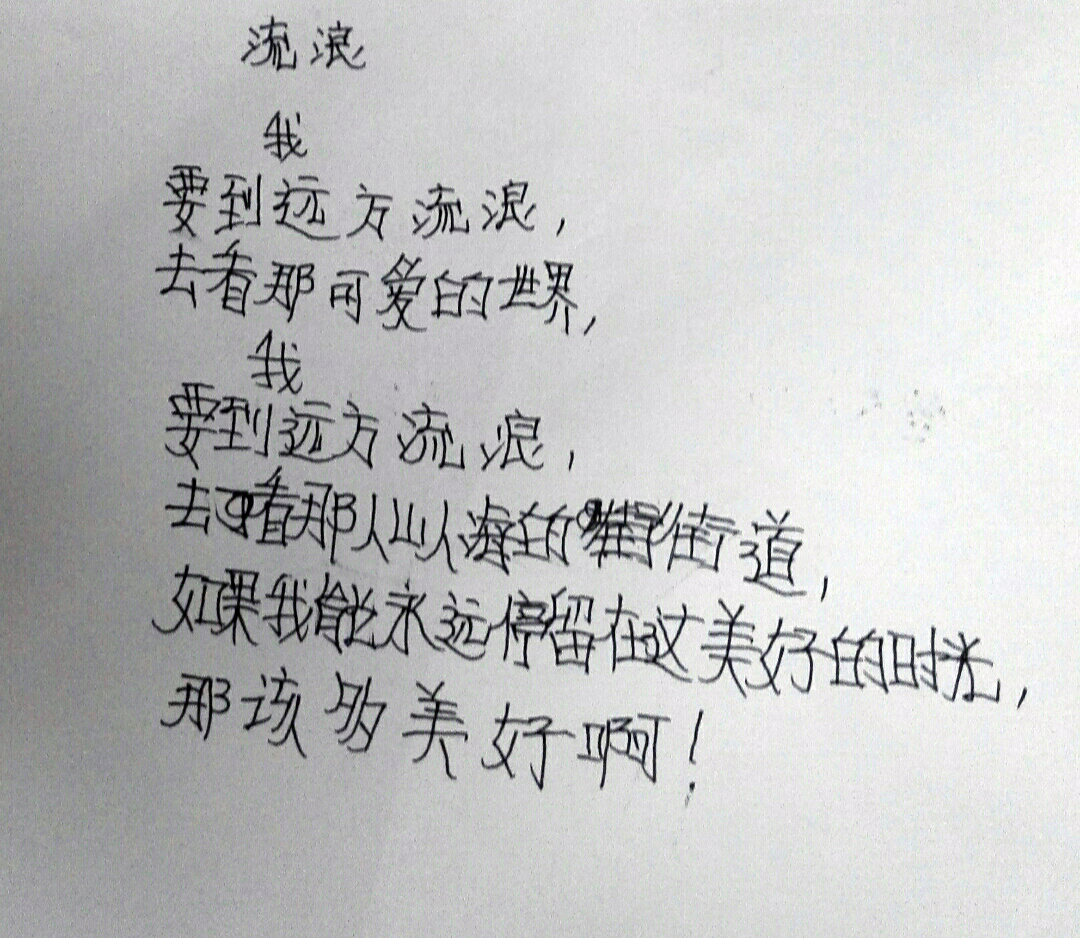 流浪
我
要到远方流浪，
去看那可爱的世界，
我
要到远方流浪，
去看那人山人海的街道，
如果我能永远停留在这美好的时光，
那该多美好啊！